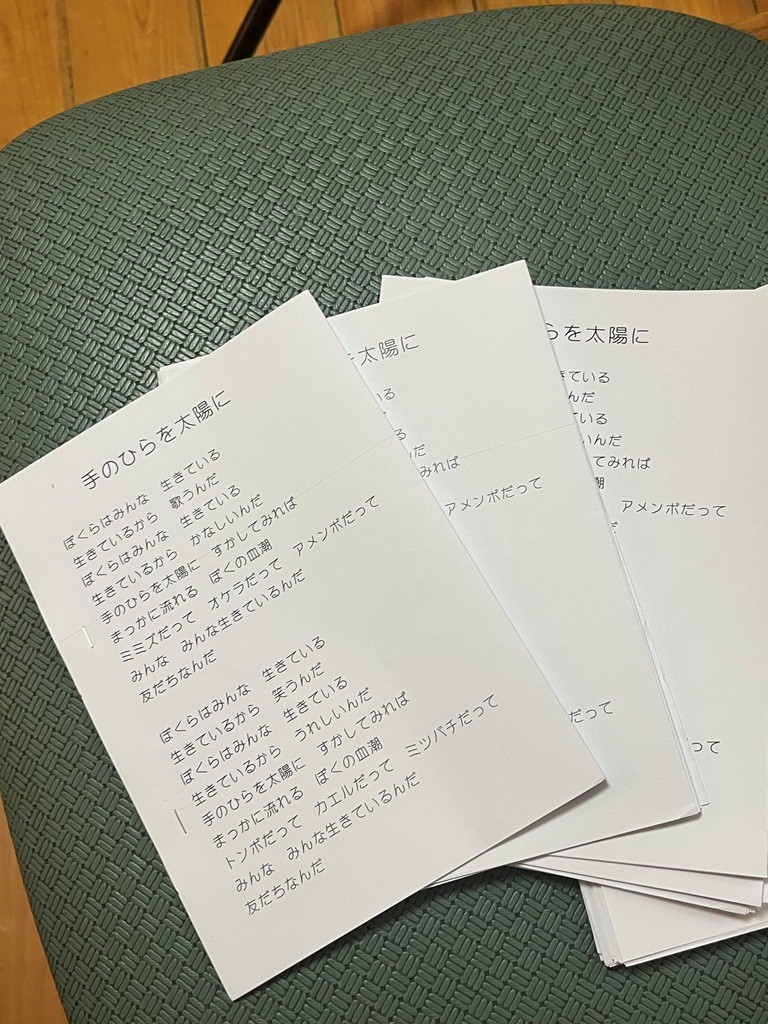 手のひらを太陽に
ぼくらはみんな　生きている
生きているから　歌うんだ
ぼくらはみんな　生きている
生きているから　かなしいんだ
手のひらを太陽に　すかしてみれば
まっかに流れる　ぼくの血潮
ミミズだって　オケラだって　アメンボだって
みんな　みんな生きているんだ
友だちなんだ
ぼくらはみんな　生きている
生きているから　笑うんだ
ぼくらはみんな　生きている
生きているから　うれしいんだ
手のひらを太陽に　すかしてみれば
まっかに流れる　ぼくの血潮
トンボだって　カエルだって　ミツバチだって
みんな　みんな生きているんだ
友だちなんだ
太陽に
いる
る
んだ
みれば
アメンボだって
だって
らを太陽に
きている
んだ
いる
いんだ
てみれば
潮
アメンボだって
だ
って